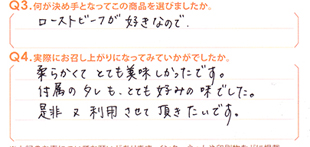 Q3.何が決め手となってこの商品を選びましたか。
ローストビーフが好きなので.
Q4.実際にお召し上がりになってみていかがでしたか。
柔らかくてとても美味しかったです。
付属のタレも、とても好みの味でした。
是非又利用させて頂きたいです。